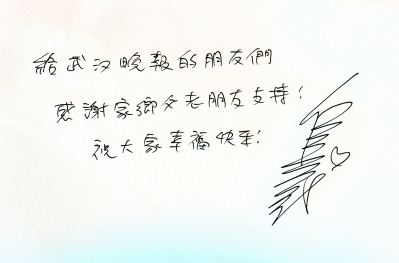 給武汉晚報的朋友們
感謝家鄉父老朋友支持！
祝大家幸福快乐！